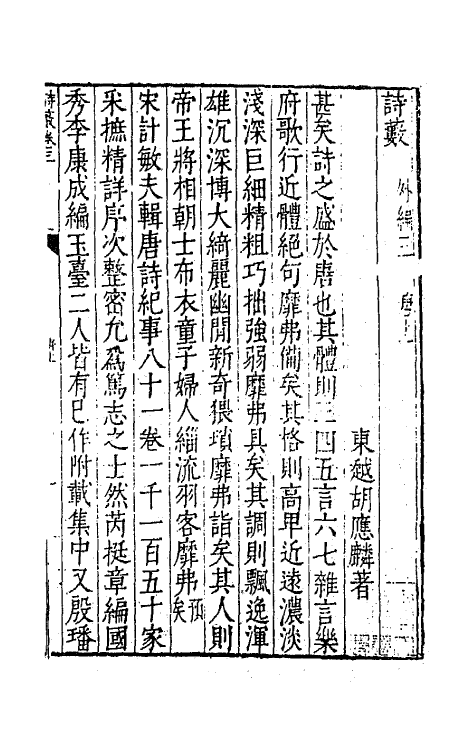 詩藪　外編三　唐上
東越胡應麟著
甚矣詩之盛於唐也其體則三四五言六七雜言樂
府歌行近體絕句靡弗備矣其格則高卑近遠濃淡
淺深巨細精粗巧拙強弱靡弗具矣其調則飄逸渾
雄沉深博大綺麗幽閒新奇猥瑣靡弗詣矣其人則
帝王將相朝士布衣童子婦人緇流羽客靡弗預矣
宋計敏夫輯唐詩紀事八十一卷一千一百五十家
采摭精詳序次整密允爲篤志之士然芮挺章編國
秀李康成編玉臺二人皆有巳作附載集中又殷璠
詩藪卷三